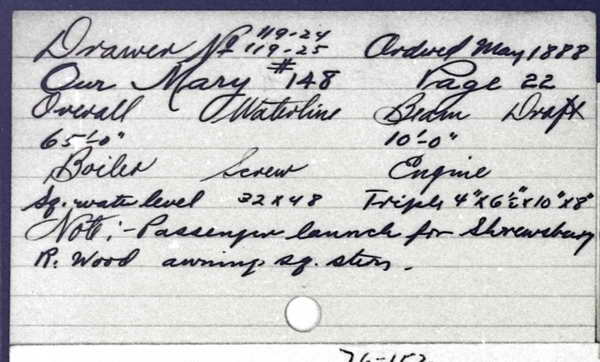 Drawer No 119-24 119-25 Ordered May 1888
Our Mary #148 Page 22
Overall Waterline Beam Draft
65'-0" 10'-0"
Boiler Screw Engine
Sq. water level 32 x 48 Triple 4"x6½"x10"x8"
Note:- Passenger launch for Shrewsbury
R. Wood awning sq. stern.
76-152